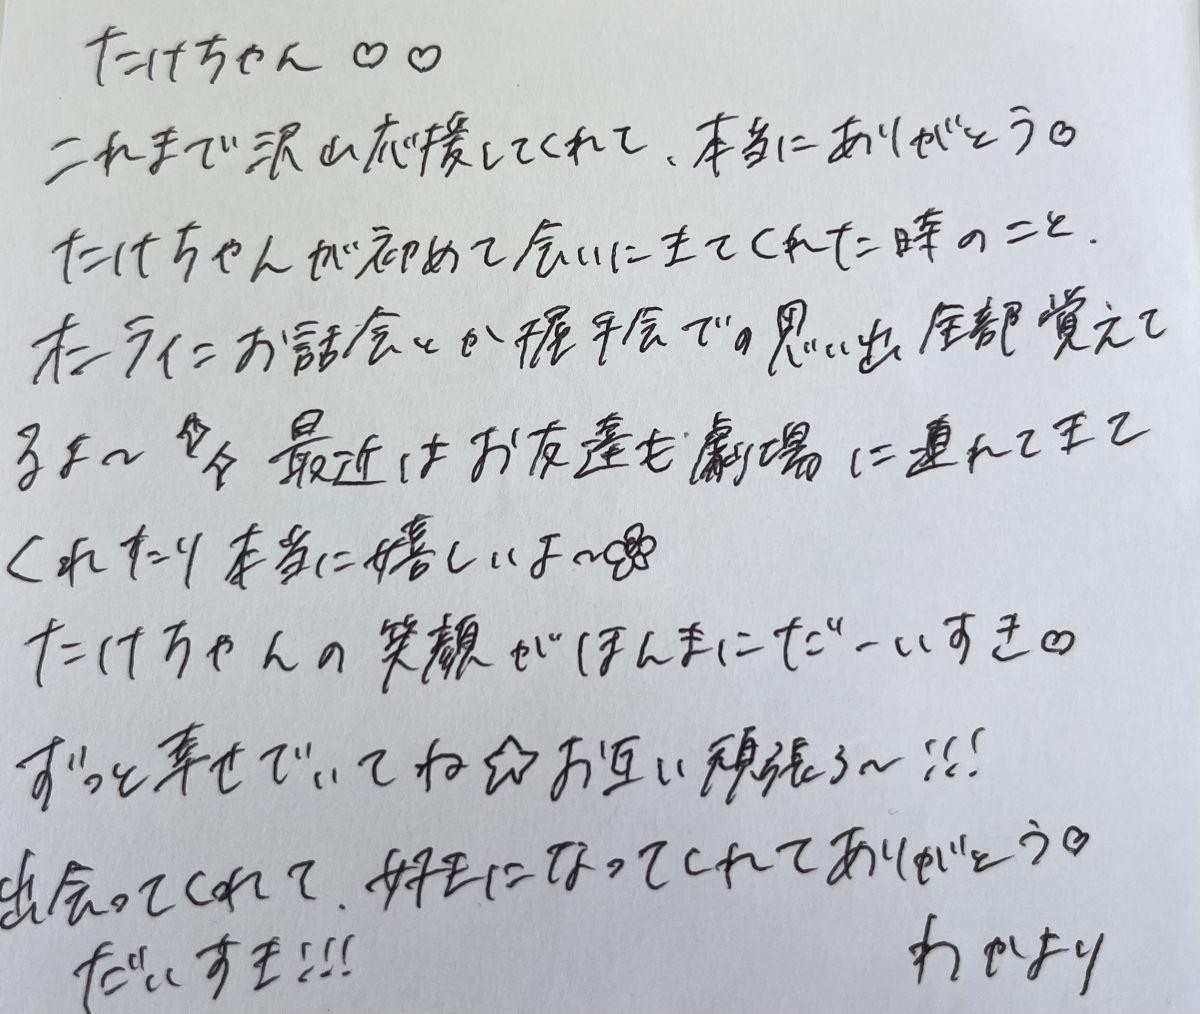 たけちゃん♡♡
これまで沢山応援してくれて、本当にありがとう♡
たけちゃんが初めて会いにきてくれた時のこと、
オンラインお話会とか握手会での思い出全部覚えて
るよ〜✧✧ 最近はお友達も劇場に連れてきて
くれたり本当に嬉しいよ〜
たけちゃんの笑顔がほんまにだーいすき♡
ずっと幸せでいてね☆お互い頑張ろ〜!!!
出会ってくれて、好きになってくれてありがとう♡
だいすき!!!
わかより